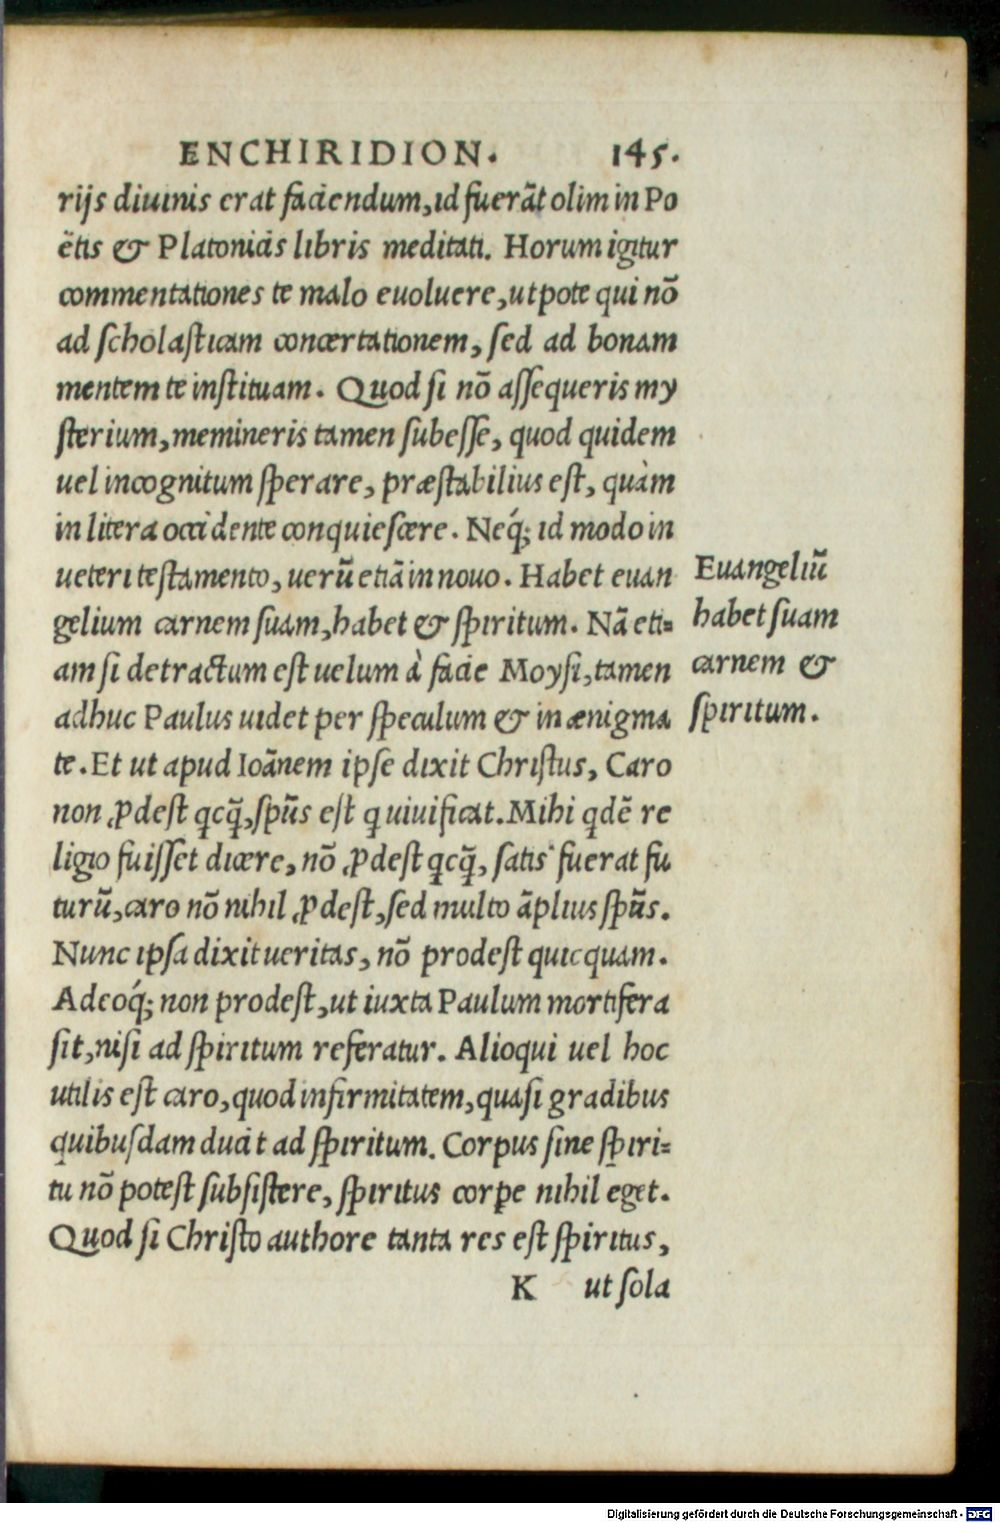 ENCHIRIDION. 145.
rijs diuinis erat faciendum, id fuerãt olim in Po
ëtis & Platonicis libris meditati. Horum igitur
commentationes te malo euoluere, utpote qui nõ
ad ſcholaſticam concertationem, ſed ad bonam
mentem te inſtituam. Quod ſi nõ aſſequeris my
ſterium, memineris tamen ſubeſſe, quod quidem
uel incognitum ſperare, præſtabilius eſt, quàm
in litera occidente conquieſcere. Neq́; id modo in
ueteri teſtamento, uerũ etiã in nouo. Habet euan
gelium carnem ſuam, habet & ſpiritum. Nã eti=
am ſi detractum eſt uelum à facie Moyſi, tamen
adhuc Paulus uidet per ſpeculum & in ænigma
te. Et ut apud Ioãnem ipſe dixit Chriſtus, Caro
non ꝓdeſt qcq̃, ſpũs eſt q uiuificat. Mihi qdẽ re
ligio fuiſſet dicere, nõ ꝓdeſt qcq̃, ſatis fuerat fu
turũ, caro nõ nihil ꝓdeſt, ſed multo ãplius ſpũs.
Nunc ipſa dixit ueritas, nõ prodeſt quicquam.
Adeoq́; non prodeſt, ut iuxta Paulum mortifera
ſit, niſi ad ſpiritum referatur. Alioqui uel hoc
utilis eſt caro, quod infirmitatem, quaſi gradibus
quibuſdam ducit ad ſpiritum. Corpus ſine ſpiri=
tu nõ poteſt ſubſiſtere, ſpiritus corpe nihil eget.
Quod ſi Chriſto authore tanta res eſt ſpiritus,
K ut ſola
Euangeliũ
habet ſuam
carnem &
ſpiritum.
Digitalisierung gefördert durch die Deutsche Forschungsgemeinschaft - DFG